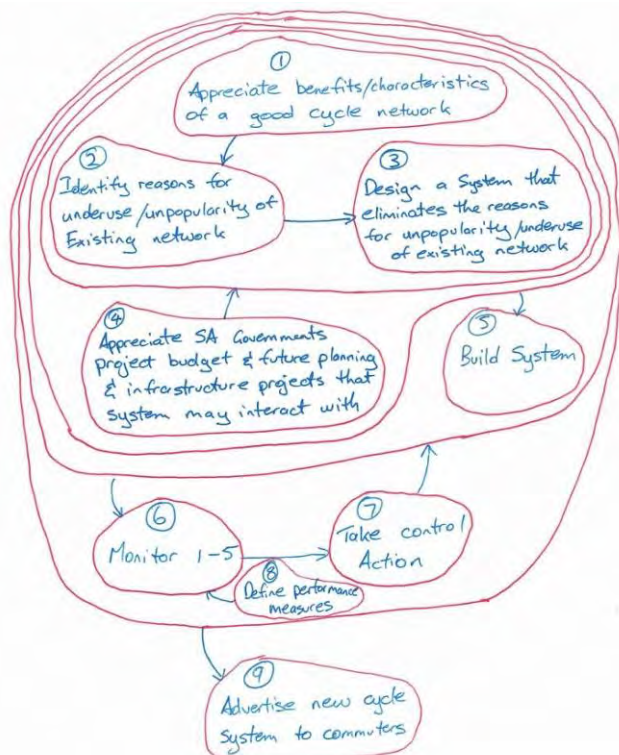 ①
Appreciate benefits/characteristics
of a good cycle network
②
Identify reasons for
underuse/unpopularity of
Existing network
③
Design a System that
eliminates the reasons
for unpopularity/underuse
of existing network
④
Appreciate SA Governments
project budget & future planning
& infrastructure projects that
system may interact with
⑤
Build System
⑥
Monitor 1-5
⑦
Take control
Action
⑧
Define performance
measures
⑨
Advertise new cycle
system to commuters